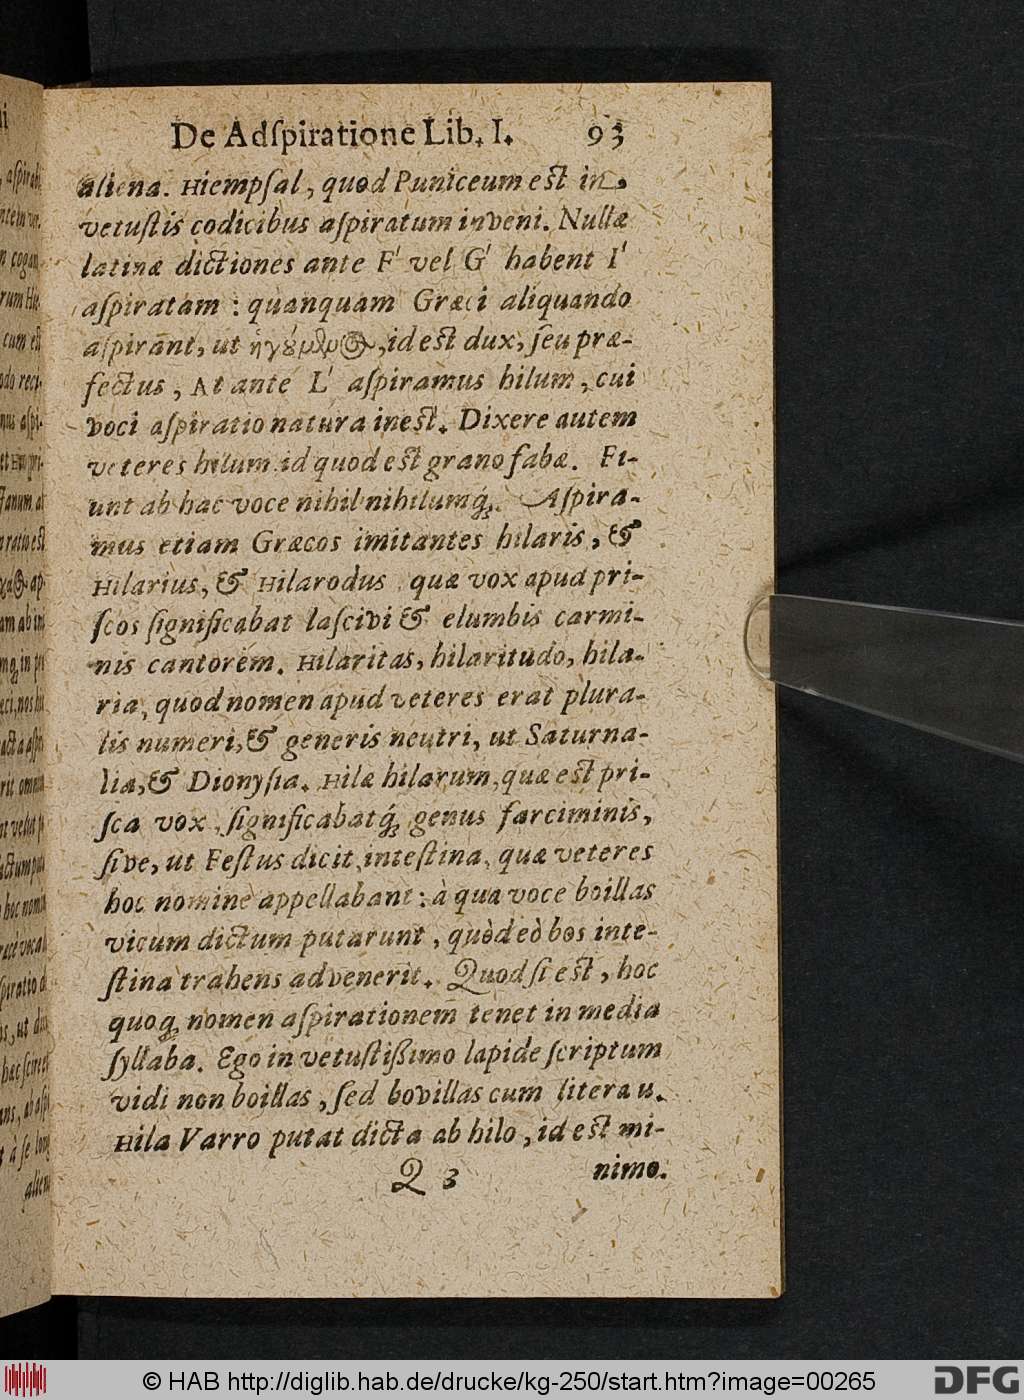 De Adſpiratione Lib. I. 93
aliena. Hiempſal, quod Puniceum est in
vetuſtis codicibus aſpiratum inveni. Nullæ
latinæ dictiones ante F' vel G' habent I'
aſpiratam: quanquam Græci aliquando
aſpirãnt, ut ἡγούμενος, id est dux, ſeu præ-
fectus, At ante L' aſpiramus hilum, cui
voci aſpiratio natura inest. Dixere autem
veteres hilum id quod est grano fabæ. Fi-
unt ab hac voce nihil nihilumq́;. Aſpira-
mus etiam Græcos imitantes hilaris, &
Hilarius, & Hilarodus quæ vox apud pri-
ſcos ſignificabat laſcivi & elumbis carmi-
nis cantorem. Hilaritas, hilaritudo, hila-
ria, quod nomen apud veteres erat plura-
lis numeri, & generis neutri, ut Saturna-
lia, & Dionyſia. Hilæ hilarum, quæ est pri-
ſca vox, ſignificabatq́; genus farciminis,
ſive, ut Feſtus dicit, inteſtina, quæ veteres
hoc nomine appellabant: à qua voce boillas
vicum dictum putarunt, quòd eò bos inte-
ſtina trahens advenerit. Quod ſi est, hoc
quoq; nomen aſpirationem̃ tenet in media
ſyllaba. Ego in vetuſtißimo lapide ſcriptum
vidi non boillas, ſed bovillas cum litera u.
Hila Varro putat dicta ab hilo, id est mi-
Q 3 nimo.
© HAB http://diglib.hab.de/drucke/kg-250/start.htm?image=00265
DFG